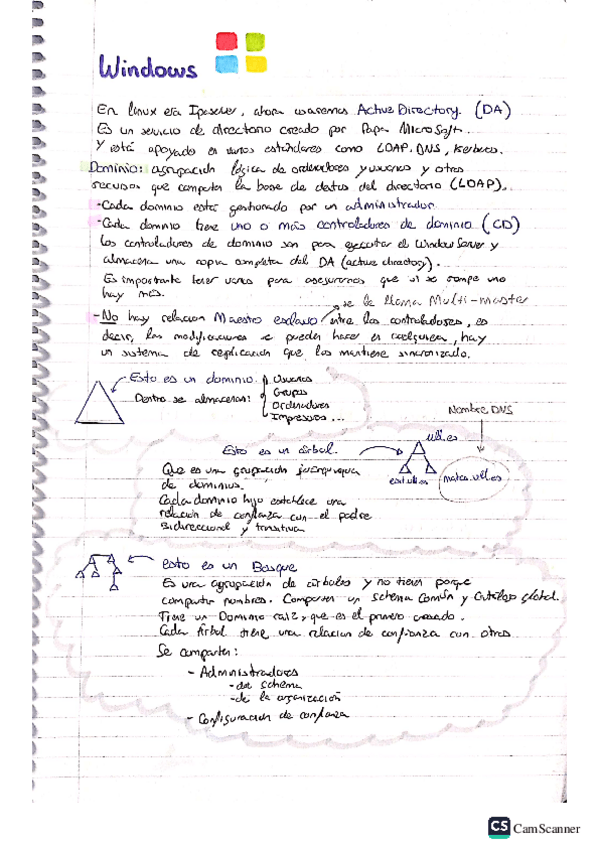 Windows
En Linux era Ipaserver, ahora usaremos Active Directory. (DA)
Es un servicio de directorio creado por Papa MicroSoft.
Y está apoyado en varios estándares como LDAP, DNS, Kerberos.
Dominio: agrupación lógica de ordenadores y usuarios y otros
recursos que comparten la base de datos del directorio (LDAP).
- Cada dominio está gestionado por un administrador
- Cada dominio tiene uno o más controladores de dominio (CD)
Los controladores de dominio son para ejecutar el Windows Server y
almacena una copia completa del DA (active directory).
Es importante tener varios para asegurarnos que si se rompe uno
hay más.
→ se le llama Multi-master
- No hay relación Maestro esclavo entre los controladores, es
decir, las modificaciones se pueden hacer en cualquiera, hay
un sistema de replicación que los mantiene sincronizado.
Esto es un dominio.
Dentro se almacenan:
Usuarios
Grupos
Ordenadores
Impresoras ...
Nombre DNS
ull.es
mates.ull.es
Esto es un árbol.
Que es una agrupación jerárquica
de dominios.
Cada dominio hijo establece una
relación de confianza con el padre
Bidireccional y transitiva
esto es un Bosque
Es una agrupación de árboles y no tienen porque
compartir nombres. Comparten un schema común y Catálogo global.
Tiene un Dominio raíz, que es el primero creado.
Cada Árbol tiene una relacion de confianza con otros
Se comparten:
- Administradores
- del schema
- de la organización
- Configuracion de confianza
CS CamScanner